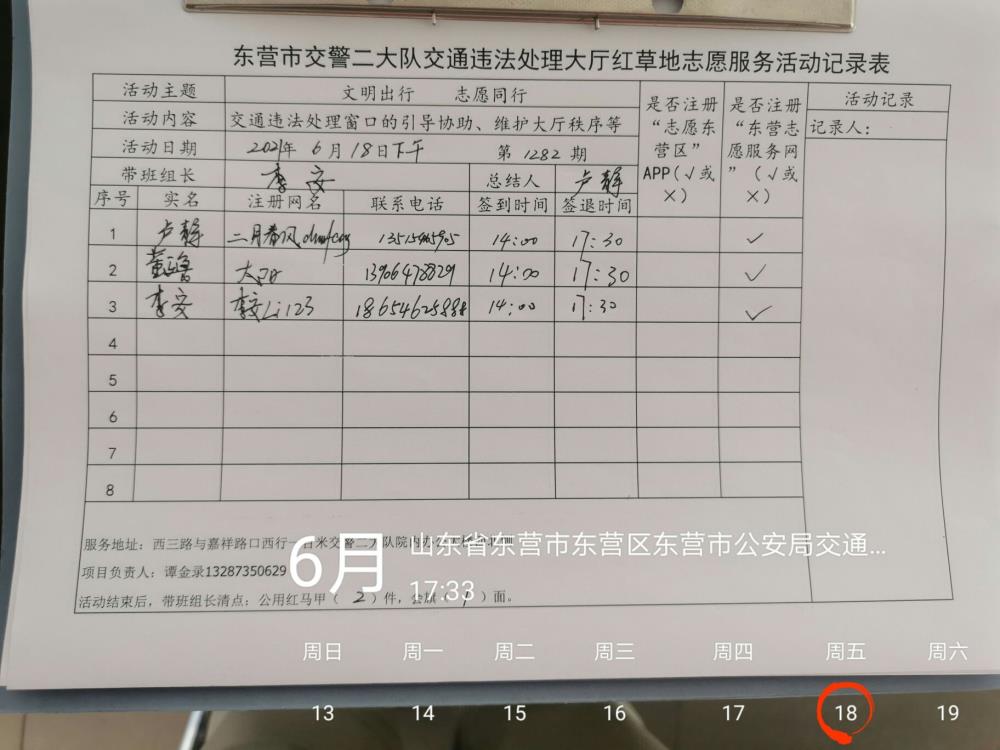 东营市交警二大队交通违法处理大厅红草地志愿服务活动记录表
活动主题 文明出行 志愿同行 是否注册“志愿东营区”APP(√或×) 是否注册“东营志愿服务网”(√或×) 活动记录
活动内容 交通违法处理窗口的引导协助、维护大厅秩序等 记录人：
活动日期 2021年 6 月 18日下午 第 1282 期
带班组长 李安 总结人 卢静
序号 实名 注册网名 联系电话 签到时间 签退时间
1 卢静 二月春风 14:00 17:30 ✓
2 太阳 13906478829 14:00 17:30 ✓
3 李安 李安Li123 18654625888 14:00 17:30 ✓
4
5
6
7
8
服务地址：西三路与嘉祥路口西行一百米交警二大队院内
项目负责人：谭金录13287350629
活动结束后，带班组长清点：公用红马甲（ 2 ）件，会旗（ 1 ）面。
6月
山东省东营市东营区东营市公安局交通...
17:33
周日 周一 周二 周三 周四 周五 周六
13 14 15 16 17 18 19